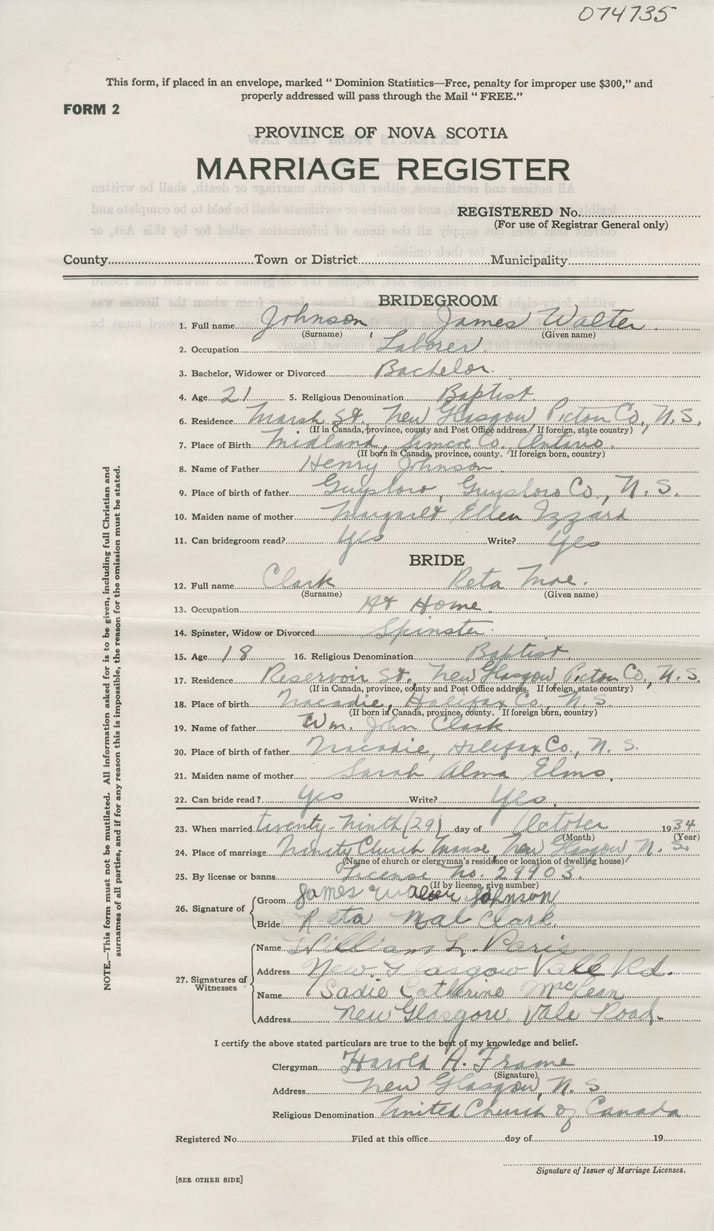 074735
This form, if placed in an envelope, marked " Dominion Statistics—Free, penalty for improper use $300," and
properly addressed will pass through the Mail " FREE."
FORM 2
PROVINCE OF NOVA SCOTIA
MARRIAGE REGISTER
REGISTERED No.
(For use of Registrar General only)
County Town or District Municipality
BRIDEGROOM
1. Full name Johnson James Walter
(Surname) (Given name)
2. Occupation Laborer
3. Bachelor, Widower or Divorced Bachelor.
4. Age 21 5. Religious Denomination Baptist
6. Residence Marsh St. New Glasgow Pictou Co, N.S.
(If in Canada, province, county and Post Office address. If foreign, state country)
7. Place of Birth Midland, Simcoe Co. Ontario.
(If born in Canada, province, county. If foreign born, country)
8. Name of Father Henry Johnson
9. Place of birth of father Guysboro, Guysboro Co, N.S.
10. Maiden name of mother Margaret Ellen Izzard
11. Can bridegroom read? Yes Write? Yes
BRIDE
12. Full name Clark Reta Mae.
(Surname) (Given name)
13. Occupation At Home.
14. Spinster, Widow or Divorced Spinster.
15. Age 18 16. Religious Denomination Baptist
17. Residence Reservoir St, New Glasgow Pictou Co, N.S.
(If in Canada, province, county and Post Office address, If foreign, state country)
18. Place of birth Nacadie, Halifax Co, N.S.
(If born in Canada, province, county. If foreign born, country)
19. Name of father Wm. John Clark
20. Place of birth of father Nacadie, Halifax Co, N.S.
21. Maiden name of mother Sarah Alma Elms,
22. Can bride read? Yes Write? Yes.
23. When married twenty-ninth (29) day of October 1934
(Month) (Year)
24. Place of marriage Trinity Church Manse, New Glasgow, N.S.
(Name of church or clergyman's residence or location of dwelling house)
25. By license or banns License No. 29903.
(If by license, give number)
26. Signature of Groom James Walter Johnson
Bride Reta Mae Clark
27. Signatures of Witnesses Name William L. Paris
Address New Glasgow Vale Rd.
Name Sadie Catherine McLean
Address New Glasgow, Vale Road.
I certify the above stated particulars are true to the best of my knowledge and belief.
Clergyman Harold A. Frame
(Signature)
Address New Glasgow, N.S.
Religious Denomination United Church of Canada
Registered No. Filed at this office day of 19
Signature of Issuer of Marriage Licenses.
[SEE OTHER SIDE]
NOTE.—This form must not be mutilated. All information asked for is to be given, including full Christian and
surnames of all parties, and if for any reason this is impossible, the reason for the omission must be stated.